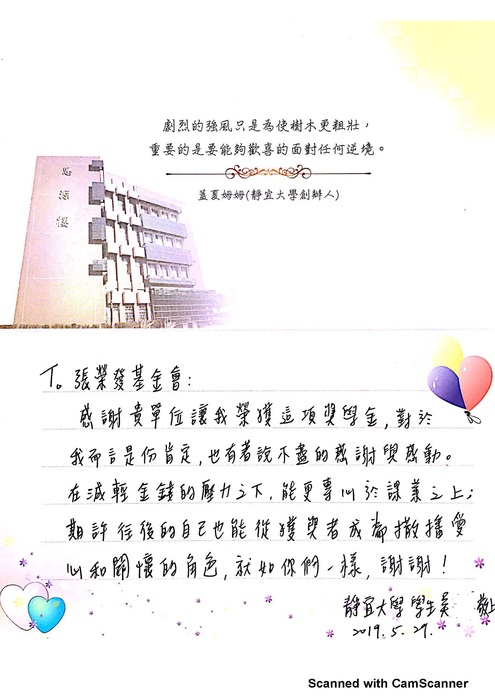 劇烈的強風只是為使樹木更粗壯，
重要的是要能夠歡喜的面對任何逆境。
蓋夏姆姆(靜宜大學創辦人)
思源樓
To 張榮發基金會：
感謝貴單位讓我榮獲這項獎學金，對於
我而言是份肯定，也有著說不盡的感謝與感動。
在減輕金錢的壓力之下，能更專心於課業之上；
期許往後的自己也能從獲獎者成都撒播愛
心和關懷的角色，就如你們一樣，謝謝！
靜宜大學 學生吳 敬上
2019.5.29.
Scanned with CamScanner